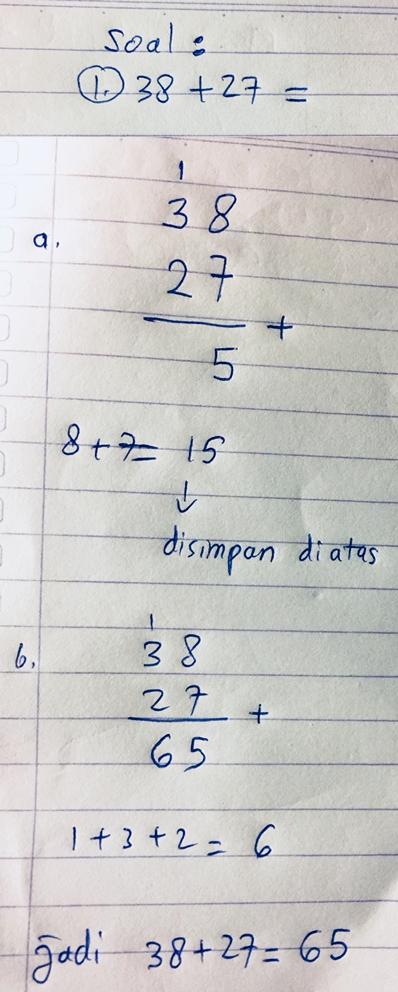 Soal :
1. 38 + 27 =
1
a. 38
27
+
5
8 + 7 = 15
↓
disimpan di atas
1
b. 38
27
+
65
1 + 3 + 2 = 6
jadi 38 + 27 = 65